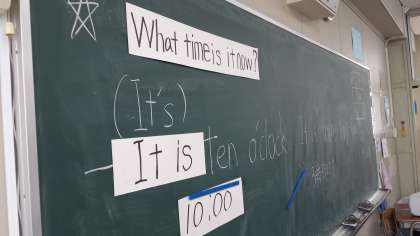 What time is it now?
(It's)
It is Ten o'clock It is
10:00